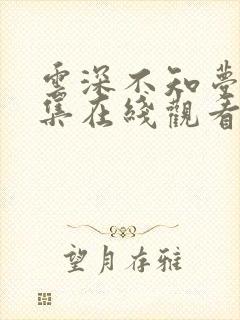 雲深不知夢
集在綫觀看
望月存雅